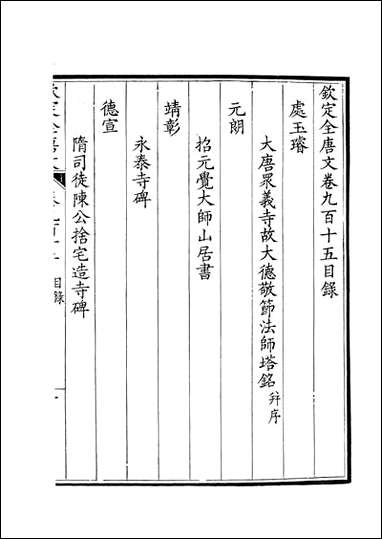 欽定全唐文卷九百十五目錄
處玉璿
大唐眾義寺故大德敬節法師塔銘并序
元朗
招元覺大師山居書
靖彰
永泰寺碑
德宣
隋司徒陳公捨宅造寺碑
目錄